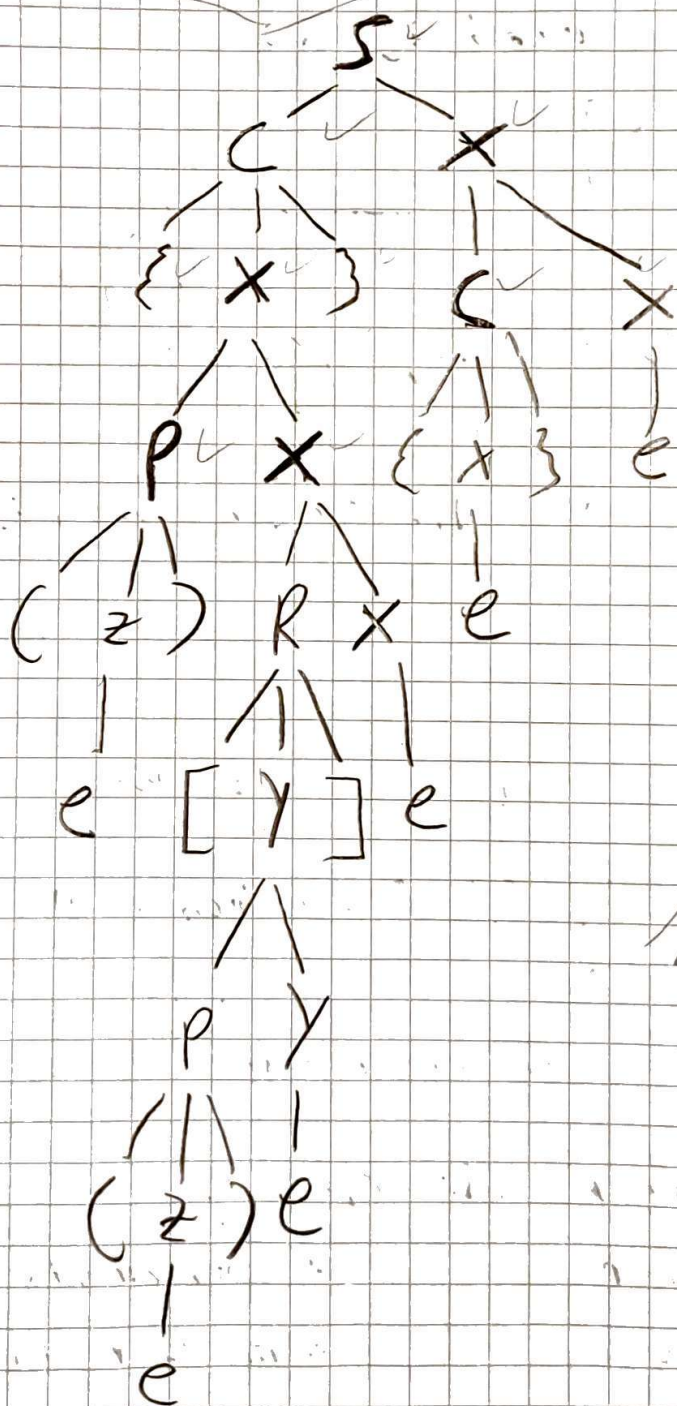 S
C X
{ X } C X
P X { x } e
( z ) R X e
e [ Y ] e
P Y
( z ) e
e